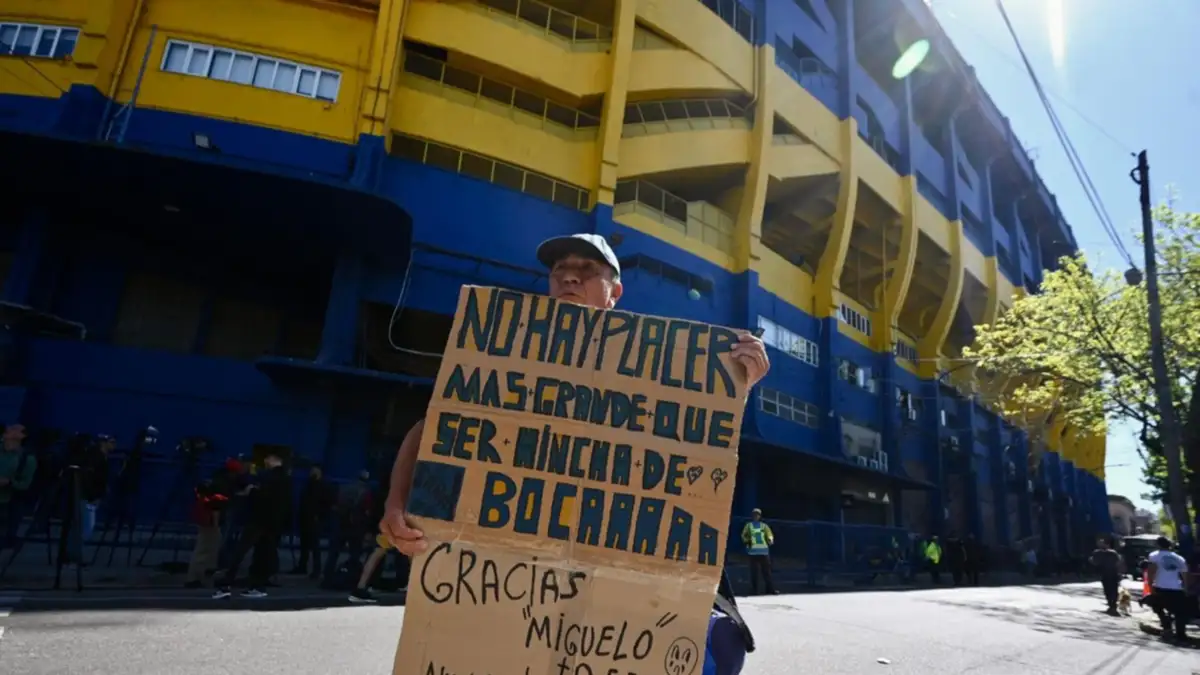 NO HAY PLACER
MAS GRANDE QUE
SER HINCHA DE
BOCAAAAA
GRACIAS
"MIGUELO"